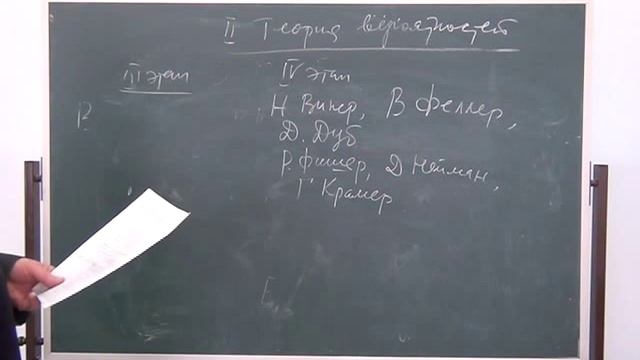 II Теория вероятностей
III этап
IV этап
Н Винер, В Феллер,
Д. Дуб
Р. Фишер, Д Нейман,
Г Крамер
В
Е